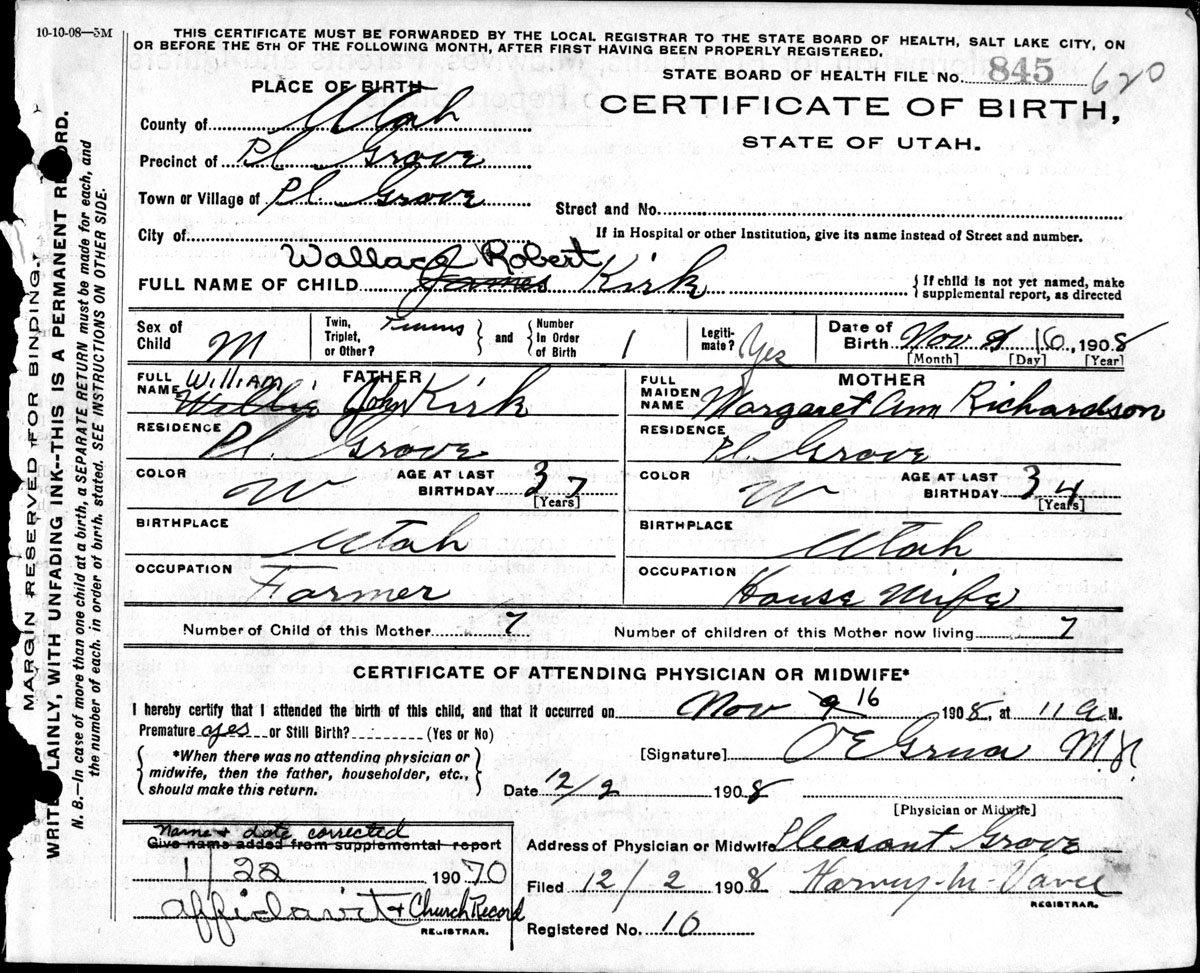 10-10-08—5M
THIS CERTIFICATE MUST BE FORWARDED BY THE LOCAL REGISTRAR TO THE STATE BOARD OF HEALTH, SALT LAKE CITY, ON
OR BEFORE THE 5TH OF THE FOLLOWING MONTH, AFTER FIRST HAVING BEEN PROPERLY REGISTERED.
STATE BOARD OF HEALTH FILE No. 845 620
PLACE OF BIRTH
CERTIFICATE OF BIRTH,
STATE OF UTAH.
County of Utah
Precinct of Pl. Grove
Town or Village of Pl. Grove
Street and No.
City of
If in Hospital or other Institution, give its name instead of Street and number.
Wallace Robert
FULL NAME OF CHILD James Kirk
{If child is not yet named, make
supplemental report, as directed
Sex of Child M
Twin, Triplet, or Other? and
{Number In Order of Birth 1
Legiti-mate? Yes
Date of Birth Nov 9 16, 1908
[Month] [Day] [Year]
FATHER
FULL NAME William Willie John Kirk
RESIDENCE Pl. Grove
COLOR W
AGE AT LAST BIRTHDAY 37
[Years]
BIRTHPLACE Utah
OCCUPATION Farmer
MOTHER
FULL MAIDEN NAME Margaret Ann Richardson
RESIDENCE Pl. Grove
COLOR W
AGE AT LAST BIRTHDAY 34
[Years]
BIRTHPLACE Utah
OCCUPATION House Wife
Number of Child of this Mother 7
Number of children of this Mother now living 7
CERTIFICATE OF ATTENDING PHYSICIAN OR MIDWIFE*
I hereby certify that I attended the birth of this child, and that it occurred on Nov 9 16 1908, at 11 a M.
Premature yes or Still Birth? (Yes or No)
{*When there was no attending physician or
midwife, then the father, householder, etc.,
should make this return.}
[Signature] O E Grua M.D.
Date 12/2 1908
[Physician or Midwife]
Address of Physician or Midwife Pleasant Grove
Filed 12/2 1908 Harvey
REGISTRAR.
Registered No. 10
Name + date corrected
Give name added from supplemental report
1/22 19070
affidavit + Church Record
REGISTRAR.
MARGIN RESERVED FOR BINDING.
WRITE PLAINLY, WITH UNFADING INK--THIS IS A PERMANENT RECORD.
N. B.—In case of more than one child at a birth, a SEPARATE RETURN must be made for each, and
the number of each, in order of birth, stated. SEE INSTRUCTIONS ON OTHER SIDE.